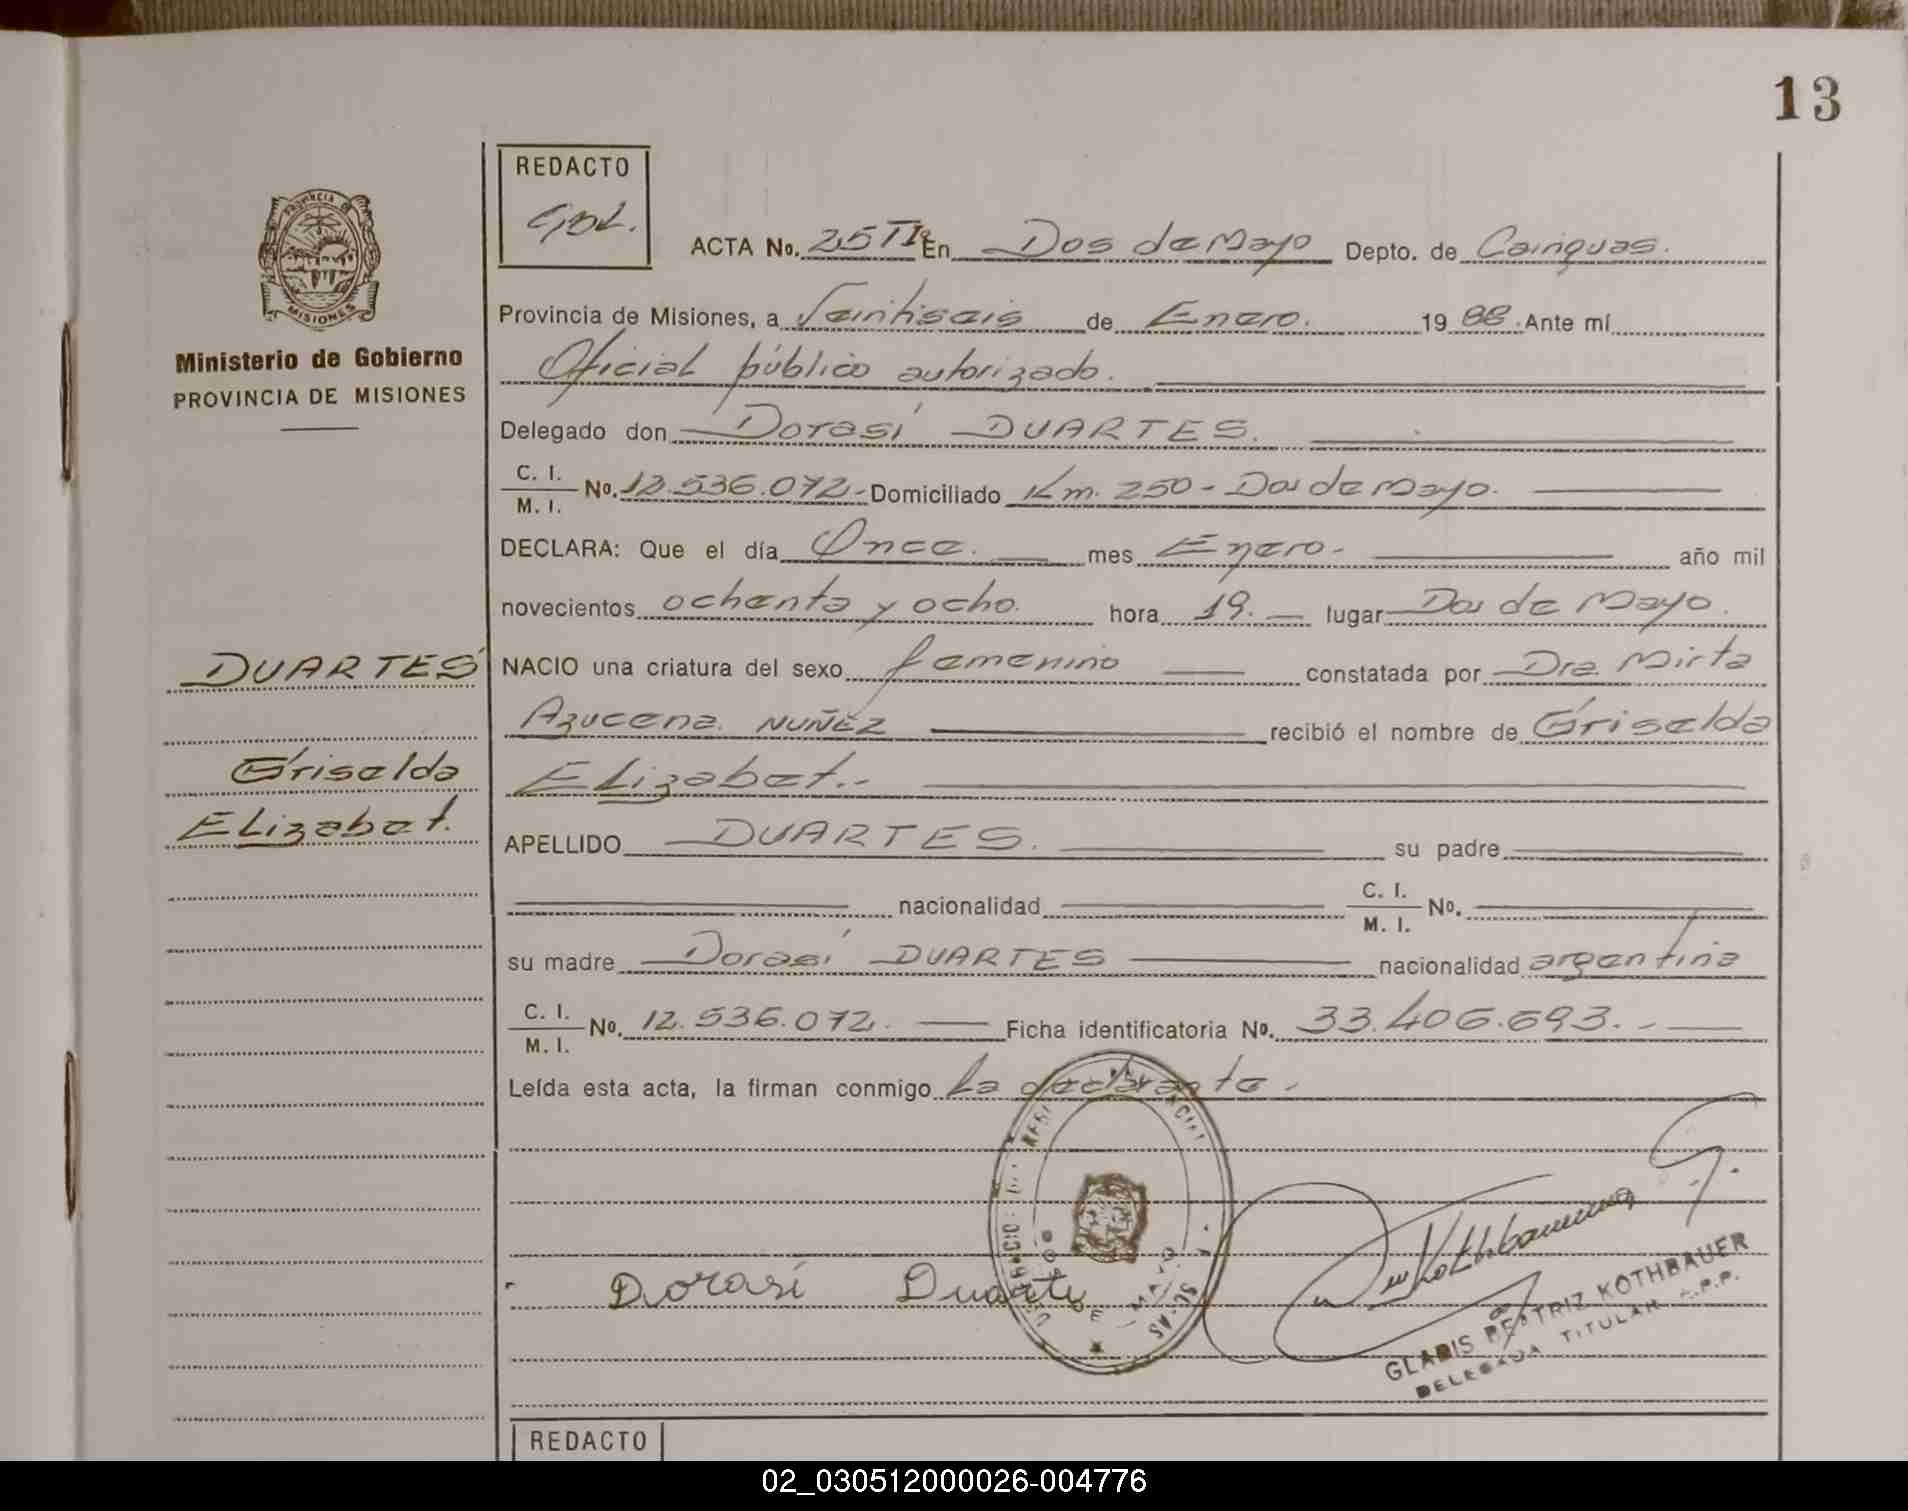 13
REDACTO
GBK.
PROVINCIA DE
MISIONES
Ministerio de Gobierno
PROVINCIA DE MISIONES
ACTA No. 25 TIº En Dos de Mayo Depto. de Cainguas.
Provincia de Misiones, a Veintiseis de Enero. 19 88. Ante mí
Oficial público autorizado.
Delegado don Dorasí DUARTES.
C. I.
M. I. No. 12.536.072- Domiciliado Km. 250 - Dos de Mayo.
DECLARA: Que el día Once. mes Enero. año mil
novecientos ochenta y ocho. hora 19. lugar Dos de Mayo.
DUARTES
NACIO una criatura del sexo femenino constatada por Dra. Mirta
Azucena NUÑEZ recibió el nombre de Griselda
Griselda
Elizabet.-
Elizabet.
APELLIDO DUARTES. su padre
nacionalidad C. I.
M. I. No.
su madre Dorasí DUARTES nacionalidad argentina
C. I.
M. I. No. 12.536.072. Ficha identificatoria No. 33.406.693.-
Leída esta acta, la firman conmigo La declarante.
Dorasí Duarte
GLADIS BEATRIZ KOTHBAUER
DELEGADA TITULAR
REDACTO
02_030512000026-004776